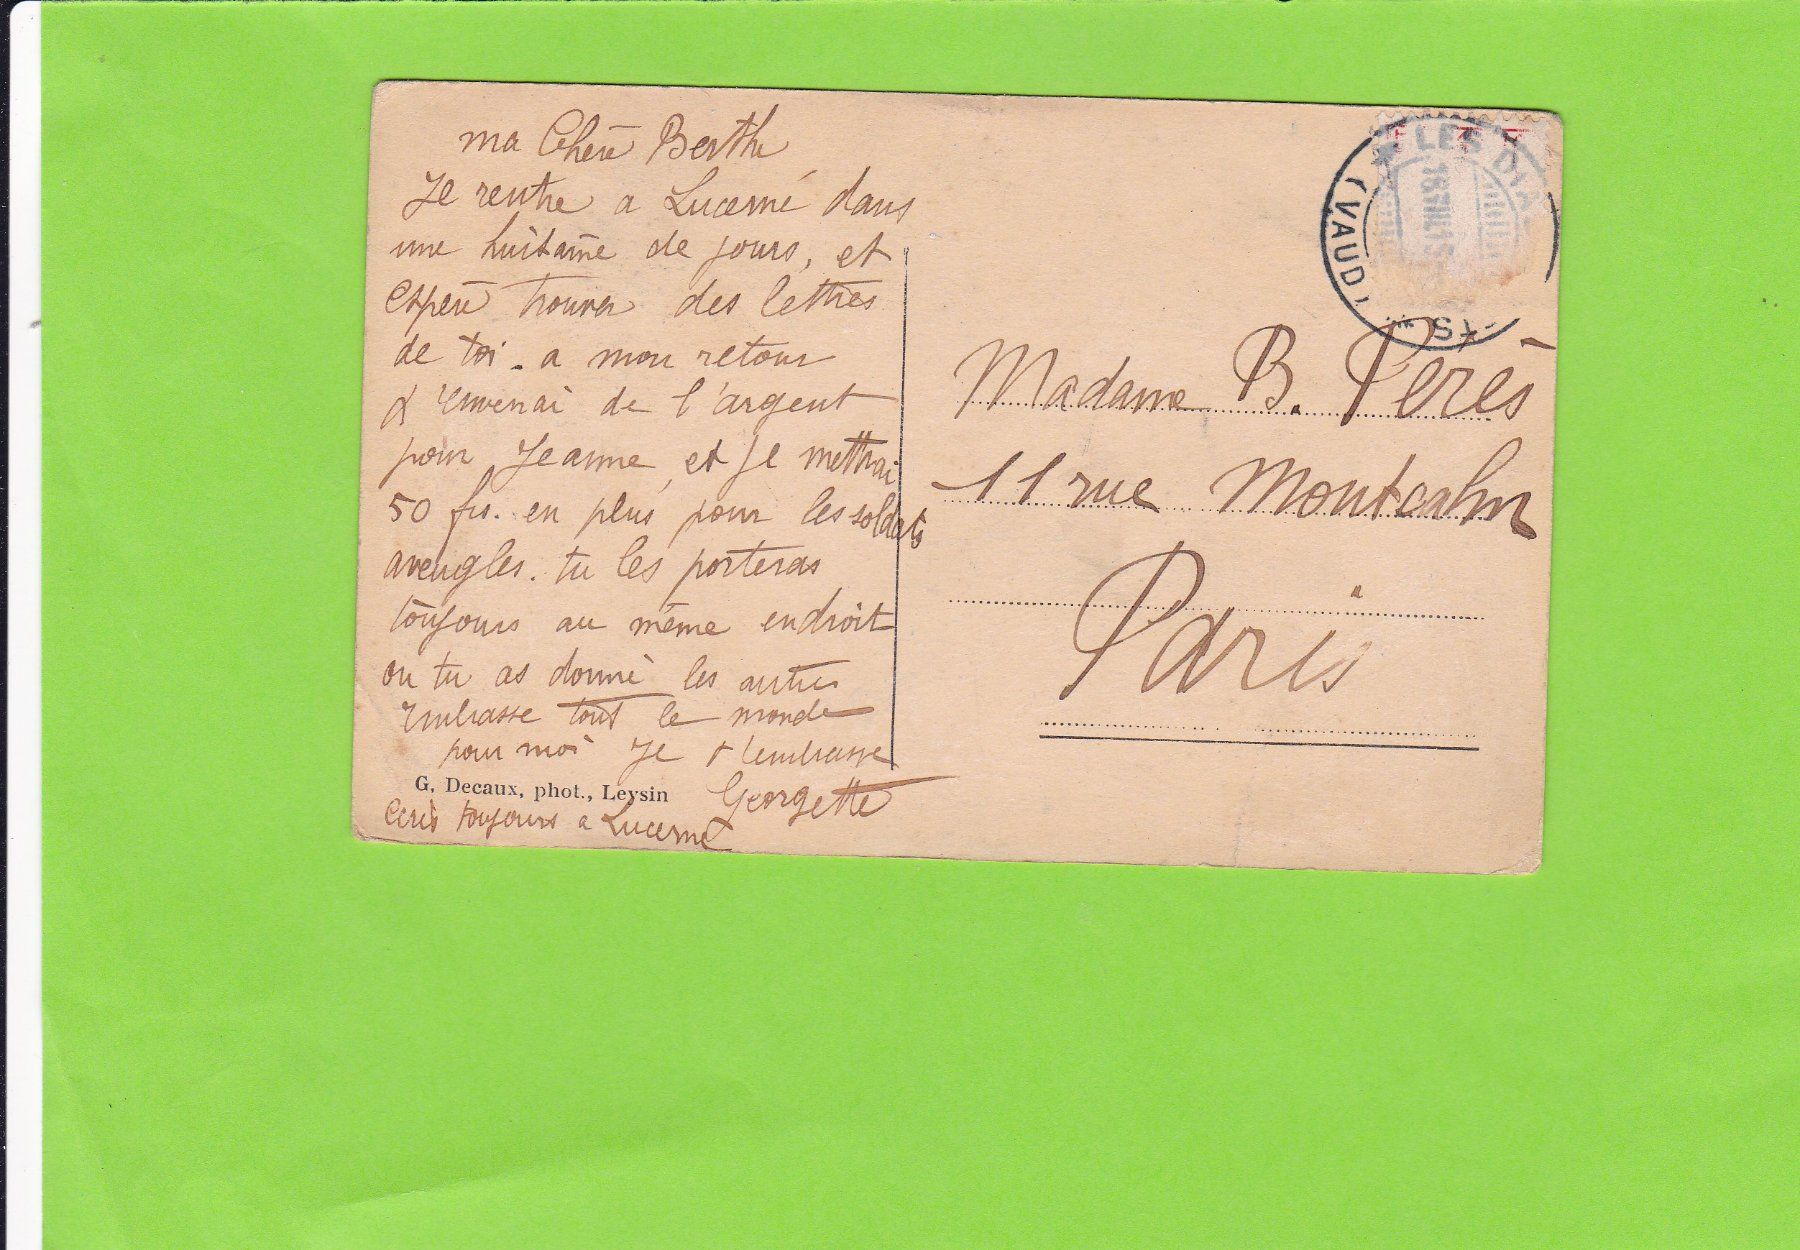 ma Chère Berthe
Je rentre a Lucerne dans
une huitaine de jours, et
espère trouver des lettres
de toi - a mon retour
j'enverai de l'argent
pour Jeanne, et je mettrai
50 frs. en plus pour les soldats
aveugles. tu les porteras
toujours au même endroit
ou tu as donné les autres
embrasse tout le monde
pour moi Je t'embrasse
Georgette
G. Decaux, phot., Leysin
Ecris toujours a Lucerne
LES DIA
(VAUD)
Madame B. Perès
11 rue Montcalm
Paris